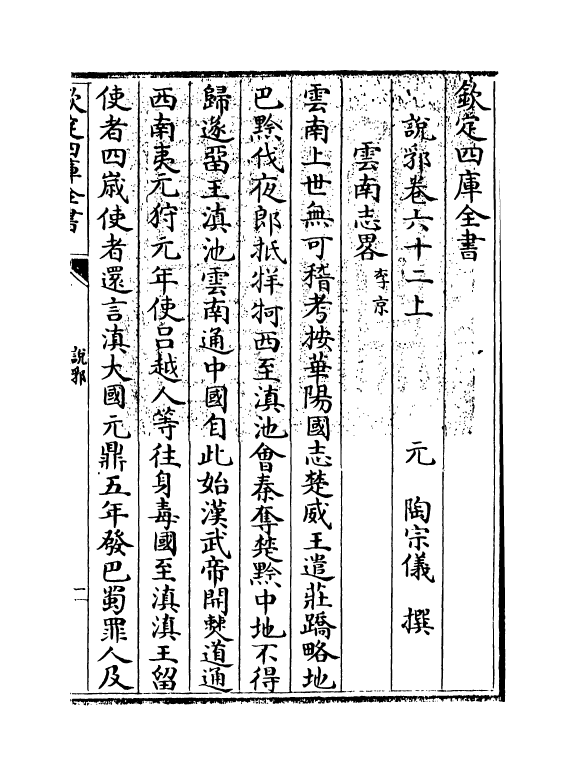 欽定四庫全書
說郛卷六十二上
元 陶宗儀 撰
雲南志畧 李京
雲南上世無可稽考按華陽國志楚威王遣莊蹻略地
巴黔伐夜郎抵牂牁西至滇池會秦奪楚黔中地不得
歸遂留王滇池雲南通中國自此始漢武帝開僰道通
西南夷元狩元年使吕越人等往身毒國至滇滇王留
使者四嵗使者還言滇大國元鼎五年發巴蜀罪人及
欽定四庫全書
說郛
一